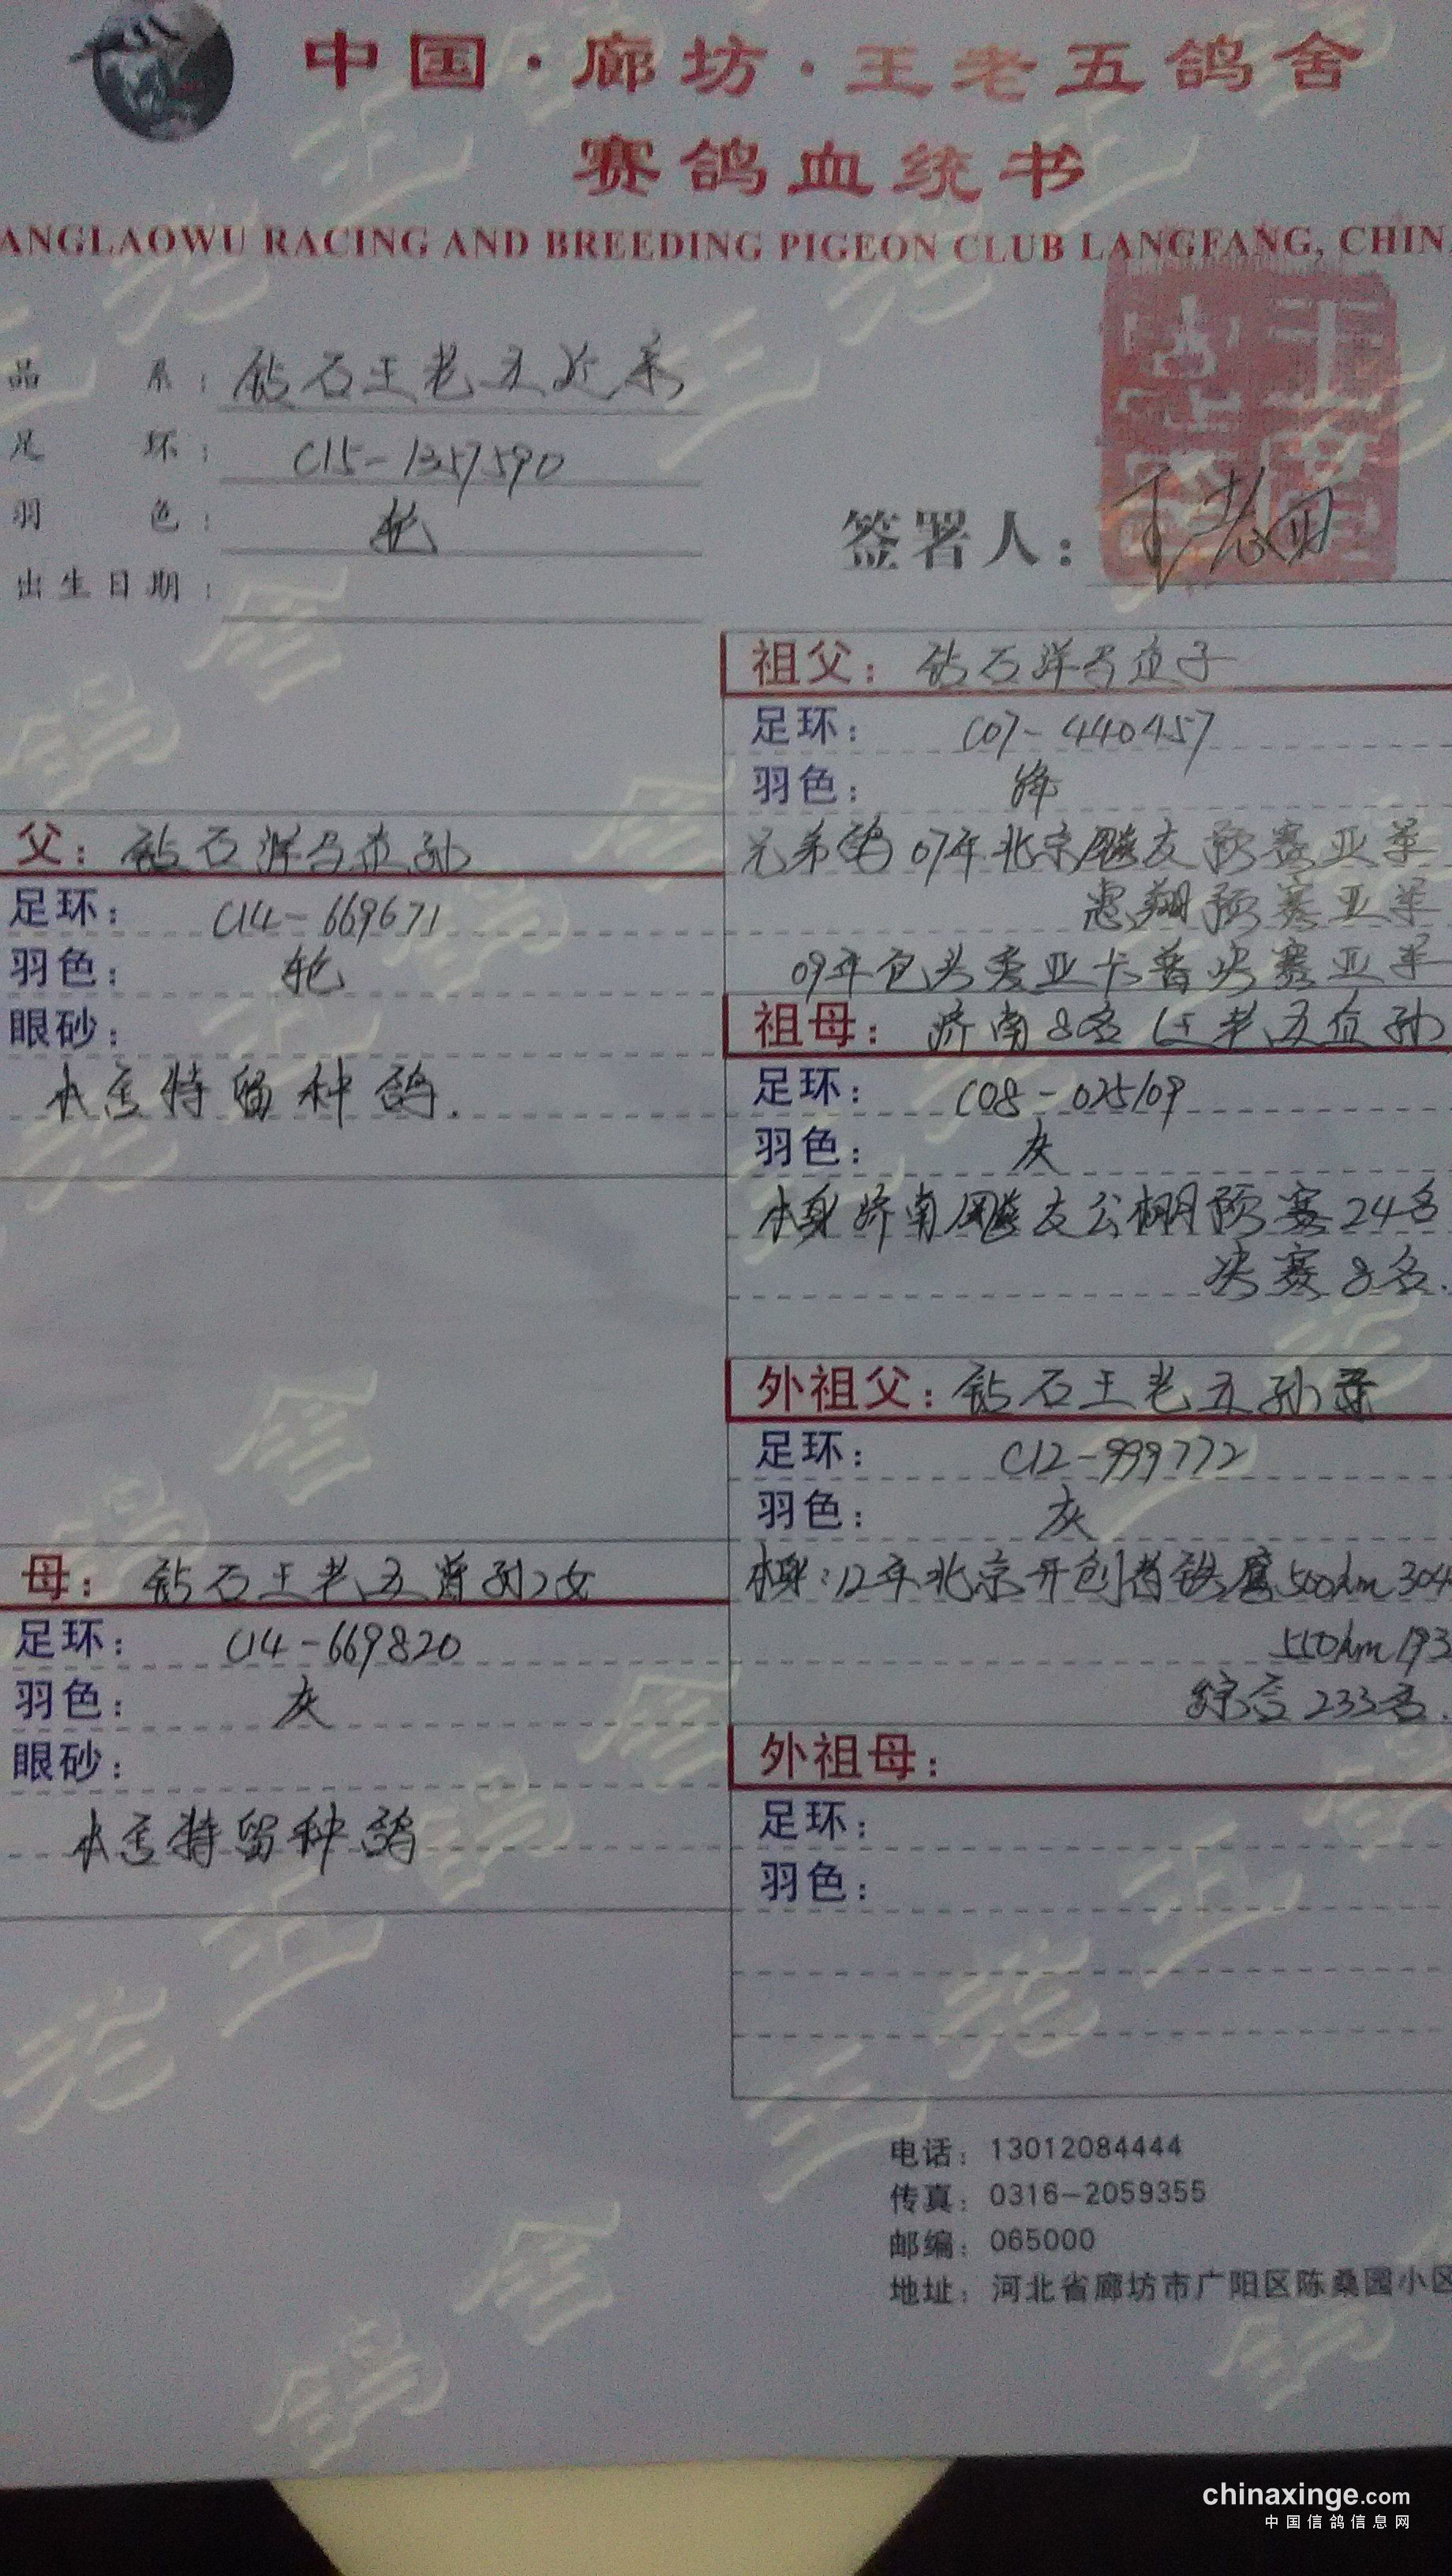 中国·廊坊·王老五鸽舍
赛鸽血统书
ANGLAOWU RACING AND BREEDING PIGEON CLUB LANGFANG, CHIN
品系：钻石王老五近系
足环：C15-1357590
羽色：
出生日期：
签署人：
祖父：钻石洋马直子
足环：C07-440457
羽色：绛
兄弟鸽07年北京飚友预赛亚军
惠翔预赛亚军
09年包头爱亚卡普决赛亚军
父：钻石洋马直孙
足环：C14-669671
羽色：
眼砂：
本舍特留种鸽.
祖母：济南8名(王老五直孙
足环：C08-025109
羽色：灰
本身济南飚友公棚预赛24名
决赛8名.
外祖父：钻石王老五孙
足环：C12-999772
羽色：灰
本身：12年北京开创者铁鹰500km 304
550km 193
综合233名.
母：钻石王老五曾孙女
足环：C14-669820
羽色：灰
眼砂：
本舍特留种鸽
外祖母：
足环：
羽色：
电话：13012084444
传真：0316-2059355
邮编：065000
地址：河北省廊坊市广阳区陈桑园小区
chinaxinge.com
中国信鸽信息网